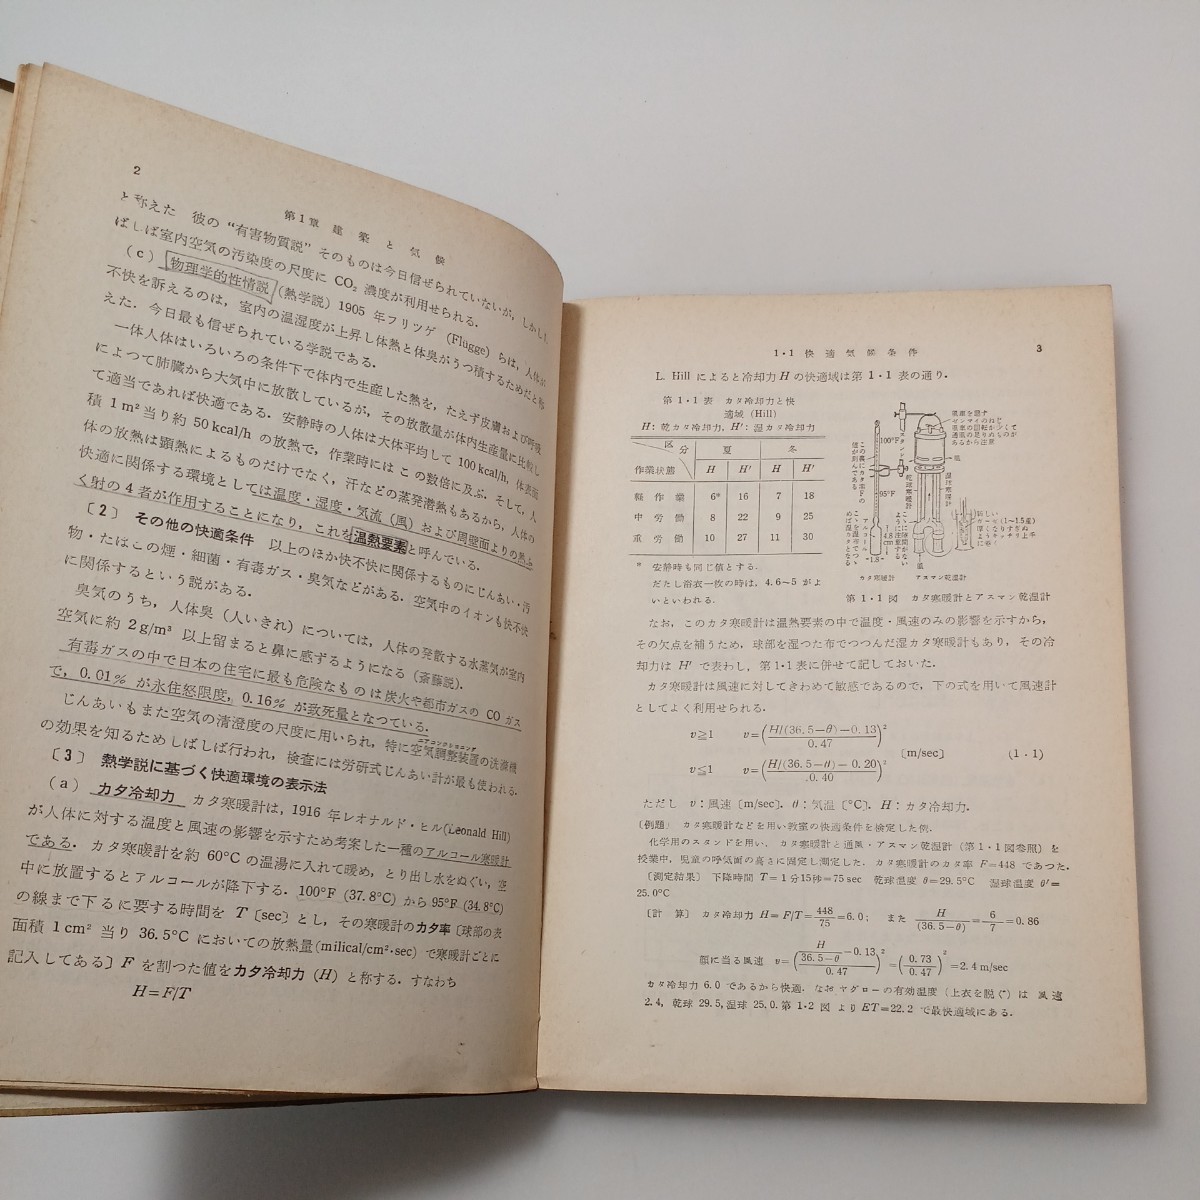 2
第1章 建築と気候
と称えた 彼の“有害物質説”そのものは今日信ぜられていないが,しかし
ばしば室内空気の汚染度の尺度に CO₂ 濃度が利用せられる.
(c) 物理学的性情説 (熱学説) 1905 年フリツゲ (Flügge) らは,人体が
不快を訴えるのは,室内の温湿度が上昇し体熱と体臭がうつ積するためだと称
えた.今日最も信ぜられている学説である.
一体人体はいろいろの条件下で体内で生産した熱を,たえず皮膚および呼吸
によつて肺臓から大気中に放散しているが,その放散量が体内生産量に比較し
て適当であれば快適である.安静時の人体は大体平均して 100 kcal/h,体表面
積 1m² 当り約 50 kcal/h の放熱で,作業時にはこの数倍に及ぶ.そして,人
体の放熱は顕熱によるものだけでなく,汗などの蒸発潜熱もあるから,人体の
快適に関係する環境としては温度・湿度・気流(風)および周壁面よりの熱ふ
く射の4者が作用することになり,これを温熱要素と呼んでいる.
〔2〕 その他の快適条件 以上のほか快不快に関係するものにじんあい・汚
物・たばこの煙・細菌・有毒ガス・臭気などがある.空気中のイオンも快不快
に関係するという説がある.
臭気のうち,人体臭(人いきれ)については,人体の発散する水蒸気が室内
空気に約 2g/m³ 以上留まると鼻に感ずるようになる(斎藤説).
有毒ガスの中で日本の住宅に最も危険なものは炭火や都市ガスの CO ガス
で,0.01% が永住怒限度,0.16% が致死量となつている.
じんあいもまた空気の清澄度の尺度に用いられ,特に空気調整装置の洗滌機
エアコンヂショニング
の効果を知るためしばしば行われ,検査には労研式じんあい計が最も使われる.
〔3〕 熱学説に基づく快適環境の表示法
(a) カタ冷却力 カタ寒暖計は,1916 年レオナルド・ヒル(Leonald Hill)
が人体に対する温度と風速の影響を示すため考案した一種のアルコール寒暖計
である.カタ寒暖計を約 60°C の温湯に入れて暖め,とり出し水をぬぐい,空
中に放置するとアルコールが降下する.100°F (37.8°C) から 95°F (34.8°C)
の線まで下るに要する時間を T〔sec〕とし,その寒暖計のカタ率〔球部の表
面積 1cm² 当り 36.5°C においての放熱量(milical/cm²·sec)で寒暖計ごとに
記入してある〕F を割つた値をカタ冷却力 (H) と称する.すなわち
H=F/T
1・1 快適気候条件
3
L. Hill によると冷却力 H の快適域は第 1・1 表の通り.
第 1・1 表 カタ冷却力と快
適域 (Hill)
H: 乾カタ冷却力, H′: 湿カタ冷却力
区分 夏 冬
作業状態 H H′ H H′
軽作業 6* 16 7 18
中労働 8 22 9 25
重労働 10 27 11 30
* 安静時も同じ値とする.
だたし浴衣一枚の時は,4.6~5 がよ
いといわれる.
100°F
95°F
この裏にカタ率Fの
値が刻んである
アルコール
1.8cm
4cm
こゝを湿布でつゝ
めば湿カタとなる
カタ寒暖計
乾球寒暖計
湿球寒暖計
風
こゝに隙間がない
ように注意する
アスマン乾湿計
第 1・1 図 カタ寒暖計とアスマン乾湿計
なお,このカタ寒暖計は温熱要素の中で温度・風速のみの影響を示すから,
その欠点を補うため,球部を湿つた布でつつんだ湿カタ寒暖計もあり,その冷
却力は H′ で表わし,第 1・1 表に併せて記しておいた.
カタ寒暖計は風速に対してきわめて敏感であるので,下の式を用いて風速計
としてよく利用せられる.
v≧1 v=(H/(36.5−θ)−0.13/0.47)²
〔m/sec〕 (1・1)
v≦1 v=(H/(36.5−θ)−0.20/0.40)²
ただし v:風速〔m/sec〕. θ:気温〔°C〕. H:カタ冷却力.
〔例題〕 カタ寒暖計などを用い教室の快適条件を検定した例.
化学用のスタンドを用い,カタ寒暖計と通風・アスマン乾湿計(第 1・1 図参照)を
授業中,児童の呼気面の高さに固定し測定した.カタ寒暖計のカタ率 F=448 であつた.
〔測定結果〕 下降時間 T=1分15秒=75 sec 乾球温度 θ=29.5°C 湿球温度 θ′=
25.0°C
〔計 算〕 カタ冷却力 H=F/T=448/75=6.0; また H/(36.5−θ)=6/7=0.86
顔に当る風速 v=(H/36.5−θ −0.13/0.47)²=(0.73/0.47)²=2.4 m/sec
カタ冷却力 6.0 であるから快適.なおヤグローの有効温度(上衣を脱ぐ)は 風速
2.4, 乾球 29.5, 湿球 25.0. 第 1・2 図 より ET=22.2 で最快適域にある.